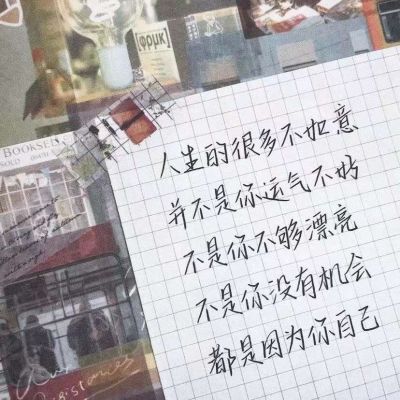 [φρμκ]
BOOKSEL
SOLD
人生的很多不如意
并不是你运气不好
不是你不够漂亮
不是你没有机会
都是因为你自己